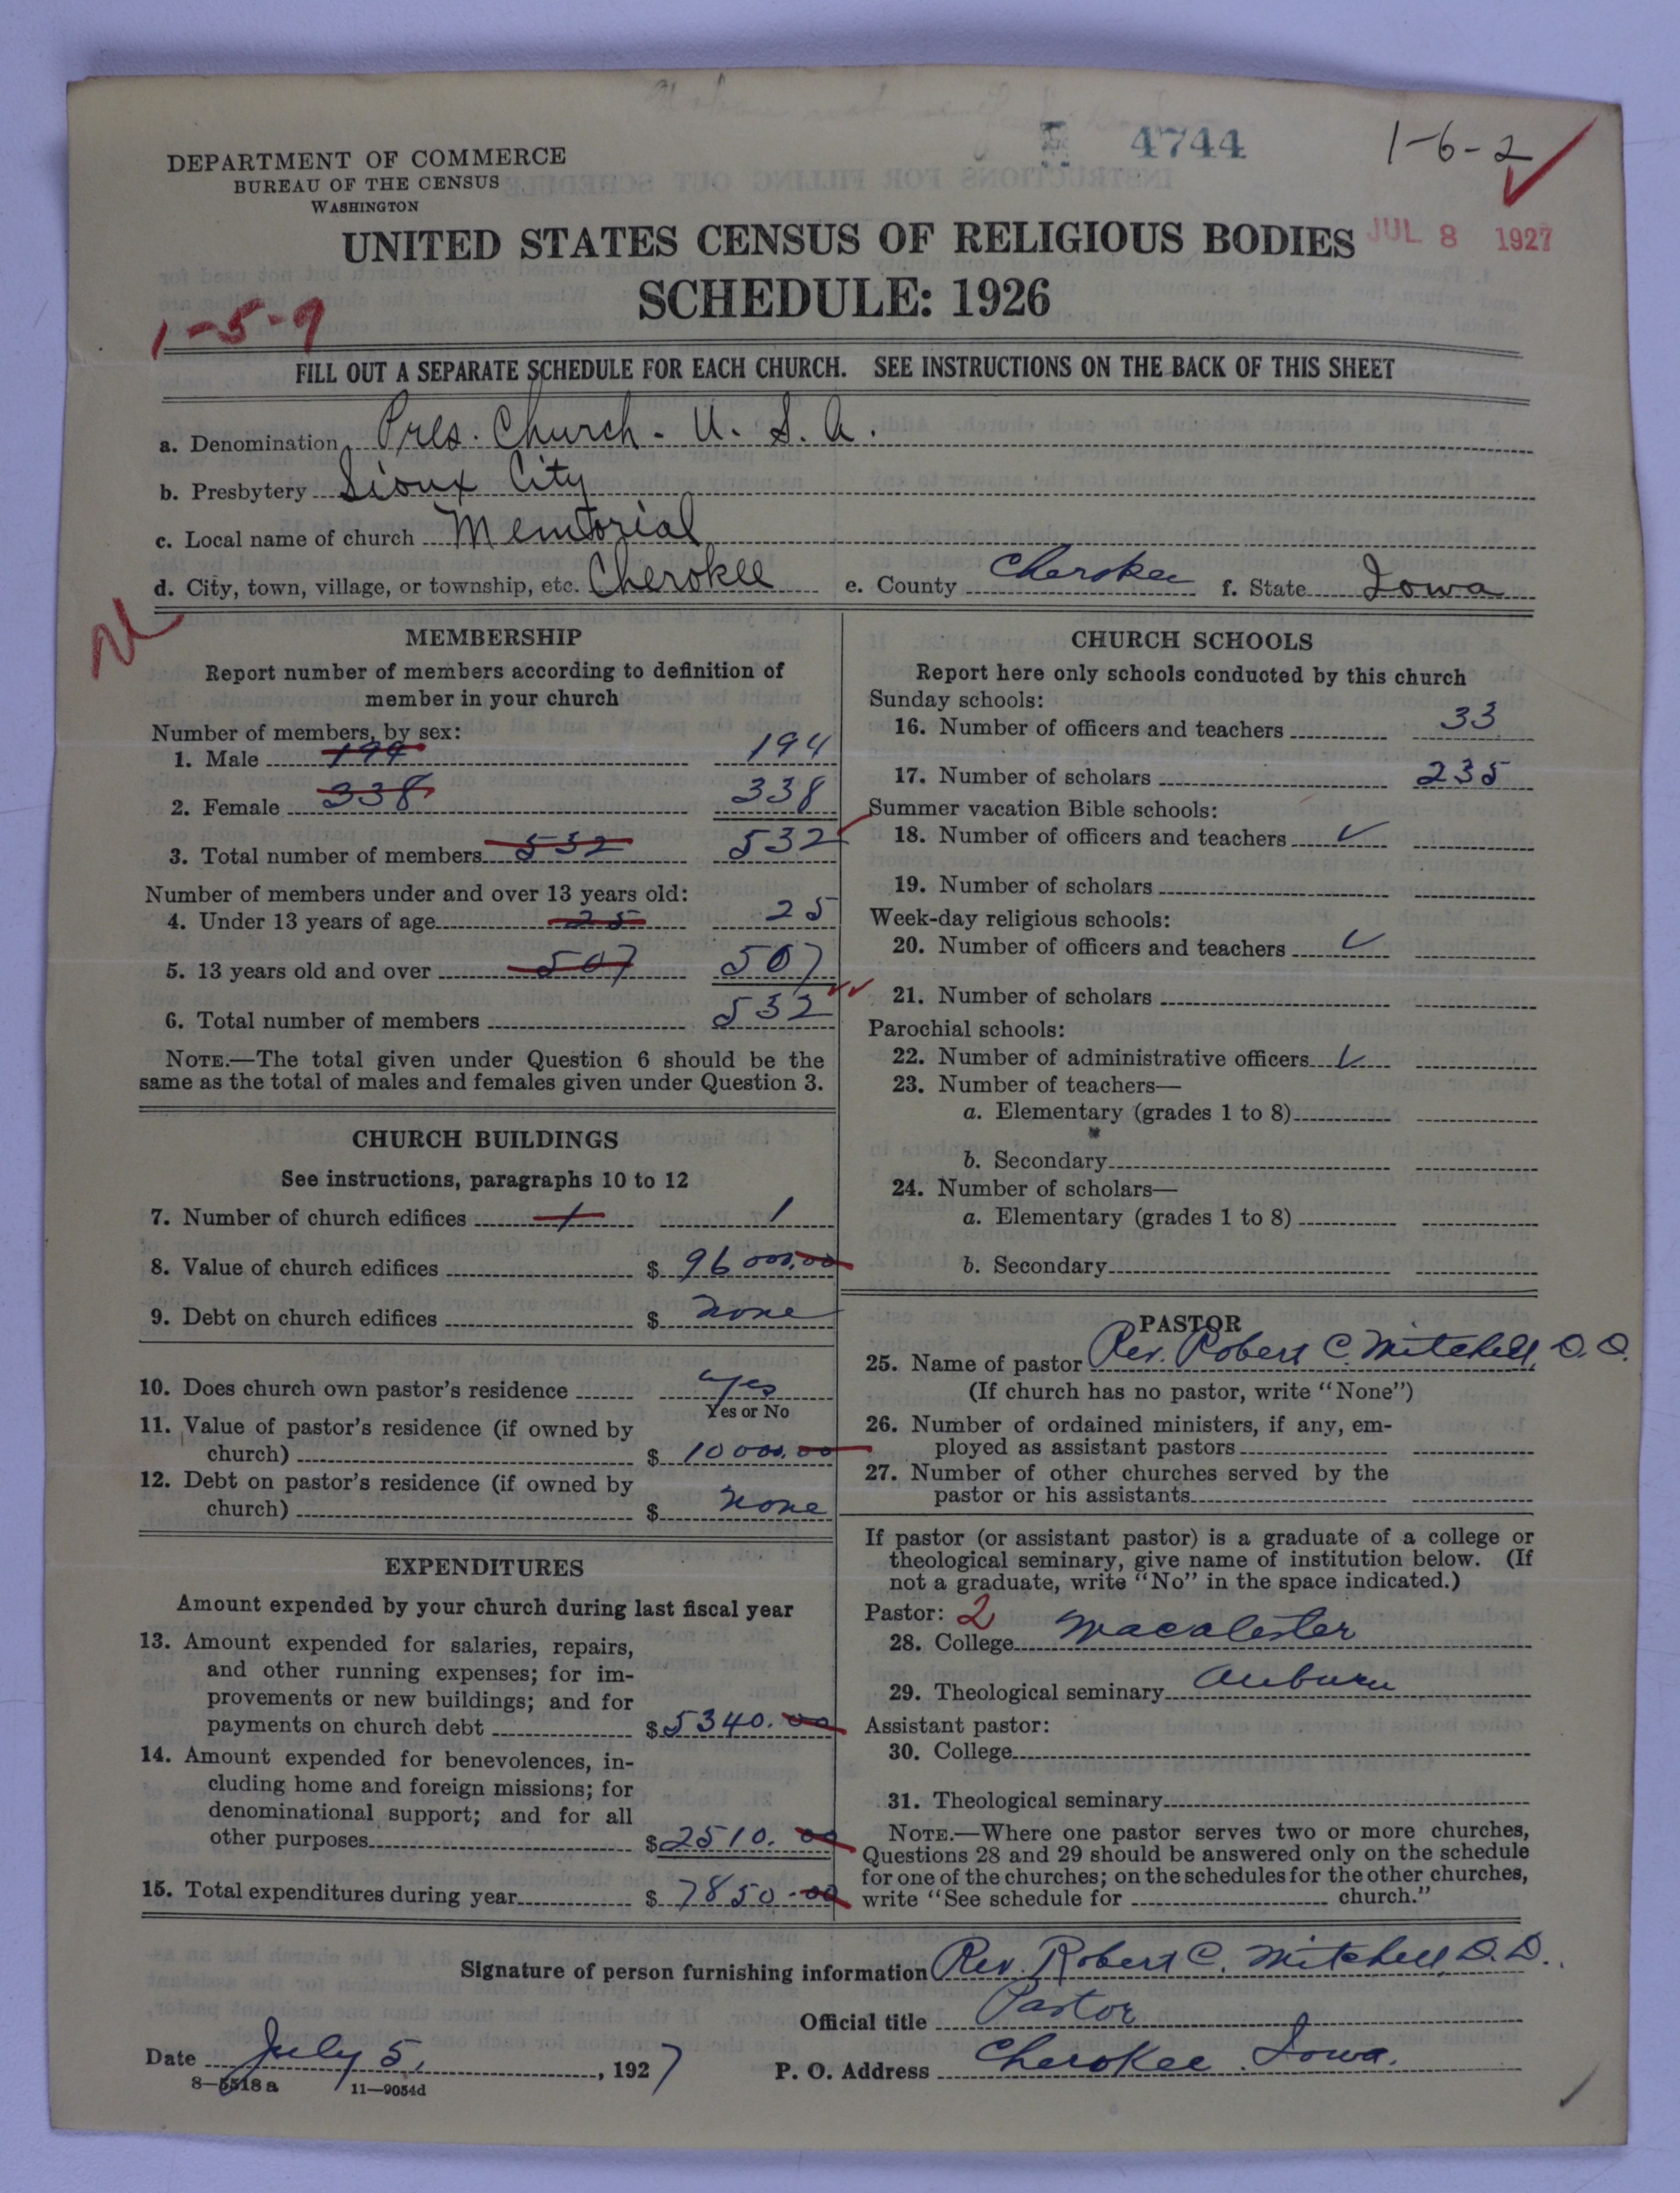 4744
1-6-2
DEPARTMENT OF COMMERCE
BUREAU OF THE CENSUS
WASHINGTON
UNITED STATES CENSUS OF RELIGIOUS BODIES
JUL 8 1927
SCHEDULE: 1926
1-5-9
FILL OUT A SEPARATE SCHEDULE FOR EACH CHURCH. SEE INSTRUCTIONS ON THE BACK OF THIS SHEET
a. Denomination Pres. Church - U. S. A.
b. Presbytery Sioux City
c. Local name of church Memorial
d. City, town, village, or township, etc. Cherokee e. County Cherokee f. State Iowa
MEMBERSHIP
Report number of members according to definition of
member in your church
Number of members, by sex:
1. Male 194 194
2. Female 338 338
3. Total number of members 532 532
Number of members under and over 13 years old:
4. Under 13 years of age 25 25
5. 13 years old and over 507 507
6. Total number of members 532
NOTE.—The total given under Question 6 should be the
same as the total of males and females given under Question 3.
CHURCH BUILDINGS
See instructions, paragraphs 10 to 12
7. Number of church edifices 1 1
8. Value of church edifices $ 96000.00
9. Debt on church edifices $ none
10. Does church own pastor's residence yes
Yes or No
11. Value of pastor's residence (if owned by
church) $ 10000.00
12. Debt on pastor's residence (if owned by
church) $ none
EXPENDITURES
Amount expended by your church during last fiscal year
13. Amount expended for salaries, repairs,
and other running expenses; for im-
provements or new buildings; and for
payments on church debt $ 5340.00
14. Amount expended for benevolences, in-
cluding home and foreign missions; for
denominational support; and for all
other purposes $ 2510.00
15. Total expenditures during year $ 7850.00
CHURCH SCHOOLS
Report here only schools conducted by this church
Sunday schools:
16. Number of officers and teachers 33
17. Number of scholars 235
Summer vacation Bible schools:
18. Number of officers and teachers ✓
19. Number of scholars
Week-day religious schools:
20. Number of officers and teachers ✓
21. Number of scholars
Parochial schools:
22. Number of administrative officers ✓
23. Number of teachers—
a. Elementary (grades 1 to 8)
b. Secondary
24. Number of scholars—
a. Elementary (grades 1 to 8)
b. Secondary
PASTOR
25. Name of pastor Rev. Robert C. Mitchell, D.D.
(If church has no pastor, write "None")
26. Number of ordained ministers, if any, em-
ployed as assistant pastors
27. Number of other churches served by the
pastor or his assistants
If pastor (or assistant pastor) is a graduate of a college or
theological seminary, give name of institution below. (If
not a graduate, write "No" in the space indicated.)
Pastor: 2
28. College Macalester
29. Theological seminary Auburn
Assistant pastor:
30. College
31. Theological seminary
NOTE.—Where one pastor serves two or more churches,
Questions 28 and 29 should be answered only on the schedule
for one of the churches; on the schedules for the other churches,
write "See schedule for church."
Signature of person furnishing information Rev. Robert C. Mitchell, D.D.
Official title Pastor
Date July 5, 1927 P. O. Address Cherokee Iowa.
8—5518 a 11—9054d